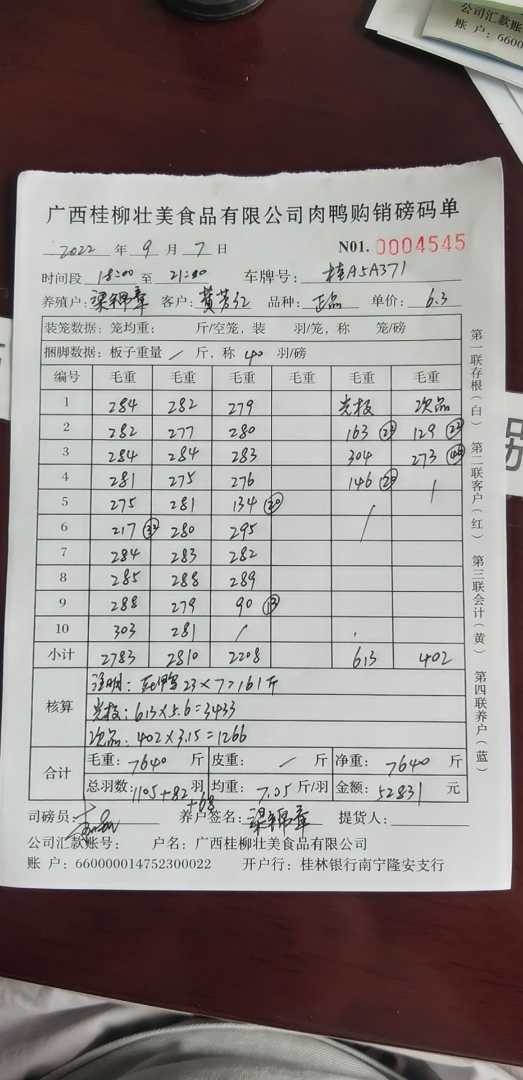 公司汇款账
账 户：6600
广西桂柳壮美食品有限公司肉鸭购销磅码单
2022 年 9 月 7 日 N01. 0004545
时间段 18:00 至 21:00 车牌号： 桂A5A371
养殖户： 客户： 品种： 正品 单价： 6.3
装笼数据：笼均重： 斤/空笼，装 羽/笼，称 笼/磅
捆脚数据：板子重量 / 斤，称 40 羽/磅
编号 毛重 毛重 毛重 毛重 毛重
1 284 282 279 光板 次品
2 282 277 280 163 129
3 284 284 283 304 273
4 281 275 276 146 /
5 275 281 134 20 /
6 217 280 295
7 284 283 282
8 285 288 289
9 288 279 90 13
10 303 281 /
小计 2783 2810 2208 613 402
核算
注明： 23×7=161斤
光板：613×5.6=3433
次品：402×3.15=1266
合计
毛重：7640 斤 皮重： / 斤 净重： 7640 斤
总羽数：1105+82+68 羽 均重： 7.05 斤/羽 金额：52831 元
司磅员： 养户签名： 提货人：
公司汇款账号： 户名：广西桂柳壮美食品有限公司
账 户：660000014752300022 开户行：桂林银行南宁隆安支行
第一联存根（白） 第二联客户（红） 第三联会计（黄） 第四联养户（蓝）